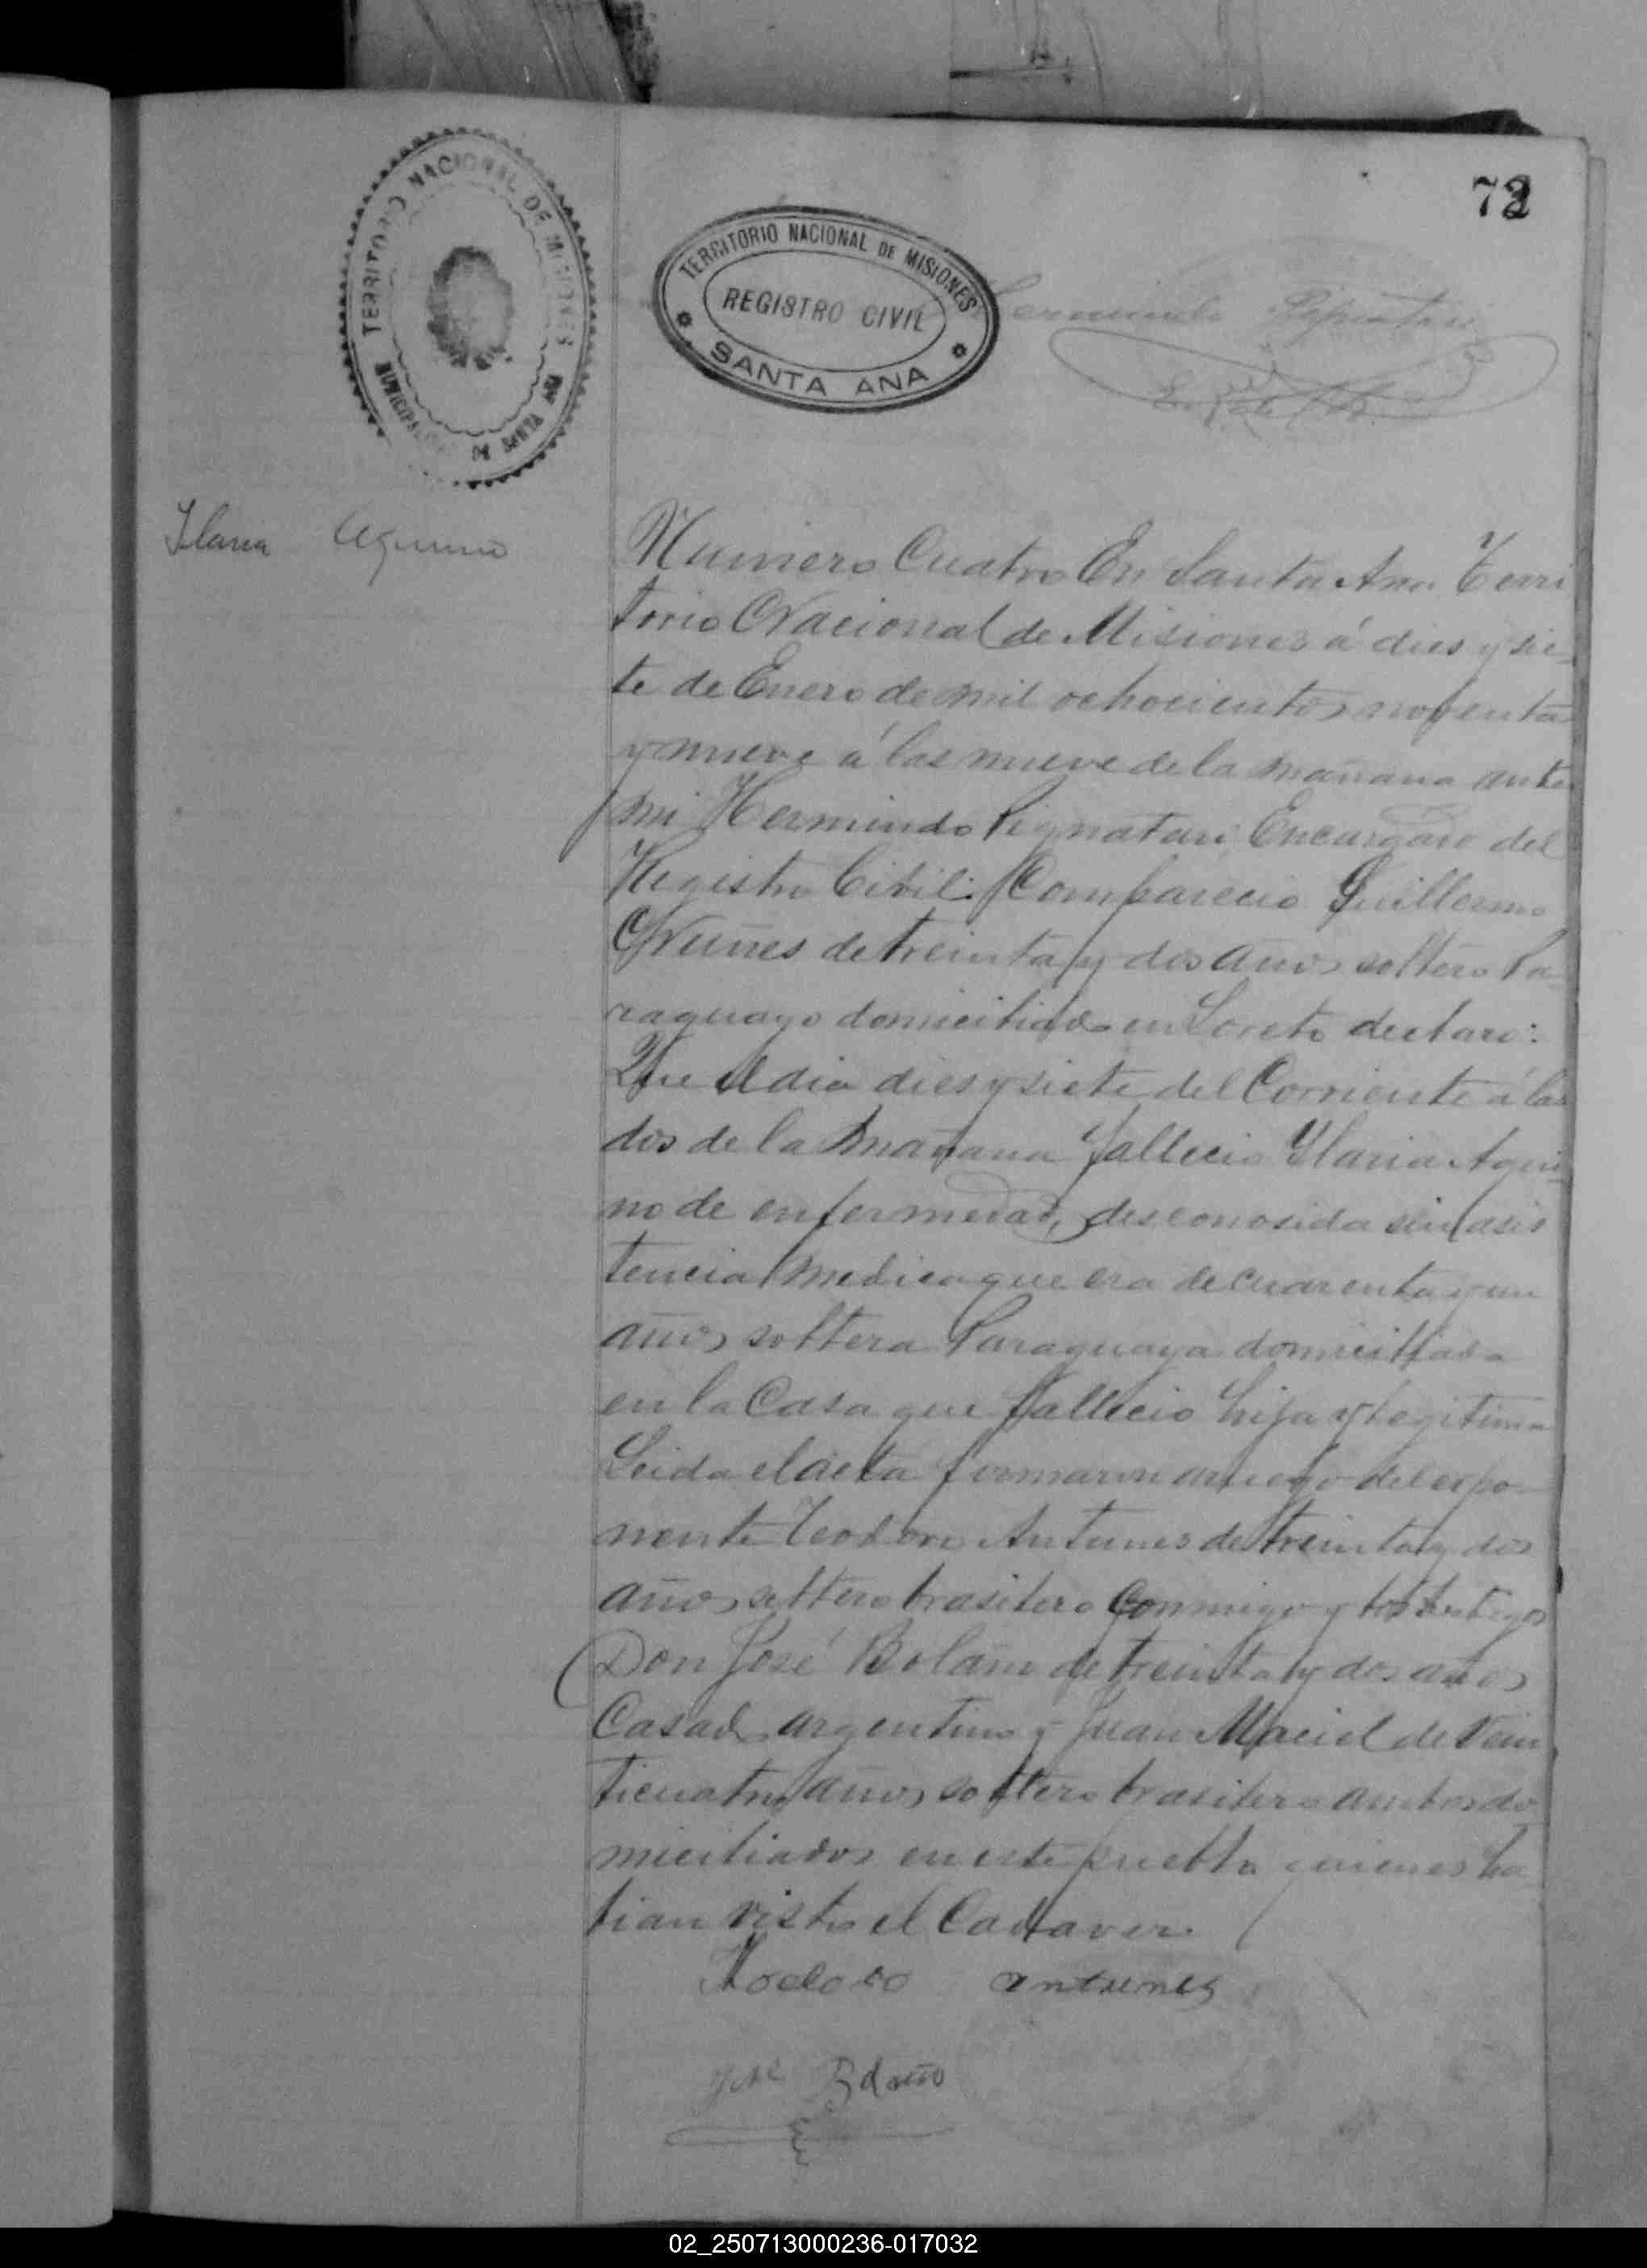 72
TERRITORIO NACIONAL DE MISIONES
MUNICIPALIDAD DE SANTA ANA
TERRITORIO NACIONAL DE MISIONES
REGISTRO CIVIL
SANTA ANA
Hermindo Pignatari
Ylaria Aquino
Numero Cuatro En Santa Ana Terri
torio Nacional de Misiones á dies y sie-
te de Enero de mil ochocientos noventa
y nueve á las nueve de la mañana ante
mi Hermindo Pignatari Encargado del
Registro Civil: Comparecio Guillermo
Nuñes de treinta y dos años soltero Pa
raguayo domiciliado en Loreto declaro:
Que el dia dies y siete del Corriente á las
dos de la mañana fallecio Ylaria Aqui-
no de enfermedad, desconosida sin asis
tencia medica que era de cuarenta y un
años soltera Paraguaya domiciliada
en la Casa que fallecio hija ylegitima
Leida el acta firmaron a ruego del expo-
nente Teodoro Antunes de treinta y dos
años soltero brasilero Conmigo y los testigos
Don José Bolaño de treinta y dos años
Casado argentino y Juan Maciel de Vein
ticuatro años soltero brasilero ambos do-
miciliados en este pueblo quienes ha-
bian visto el Cadaver.
Teodoro antunes
José Bolaño
02_250713000236-017032